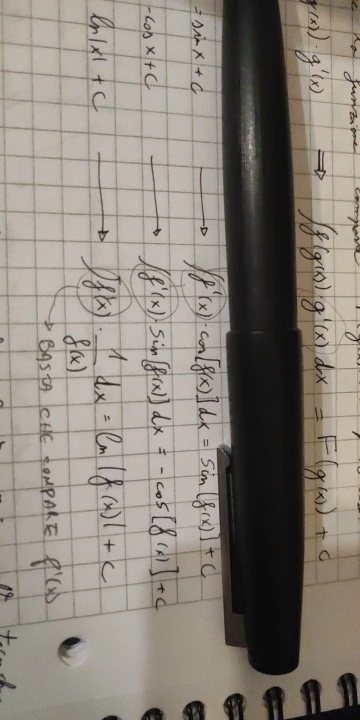 g(x)) · g'(x) ⇒ ∫f(g(x)) g'(x) dx = F(g(x)) + c
= sin x + c → ∫f'(x) · cos[f(x)] dx = sin[f(x)] + c
-cos x + c → ∫f'(x) · sin[f(x)] dx = -cos[f(x)] + c
ln|x| + c → ∫f'(x) · 1/f(x) dx = ln|f(x)| + c
→ BASTA CHE COMPARE f'(x)